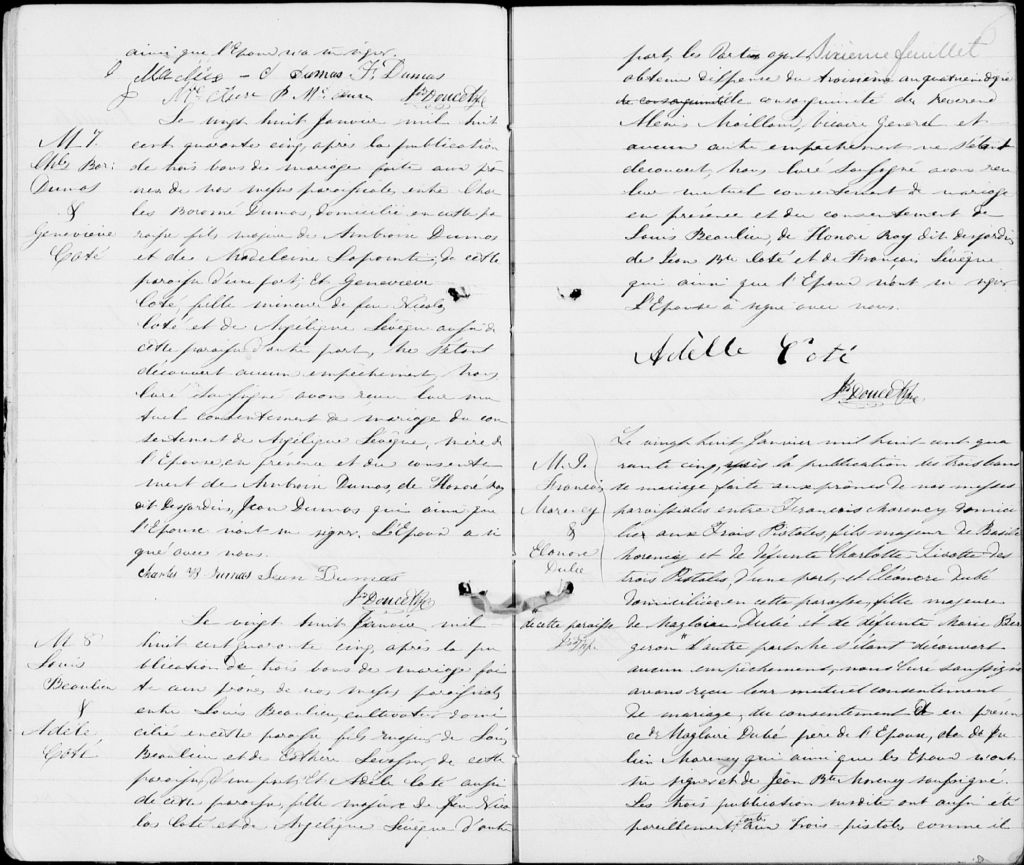 ainsi que l'Epoux n'a su signer.
J Dumas F. Dumas
Js Doucet Ptre
Le vingt huit Janvier mil huit
cent quarante cinq, après la publication
de trois bans de mariage faite aux prô
nes de nos messes paroissiales, entre Char
les Boromé Dumas, domicilié en cette pa
roisse fils majeur de Ambroise Dumas
et de Madeleine Lapointe, de cette
paroisse d'une part; Et Genevieve
Coté, fille mineure de feu Nicolas
Coté et de Angélique Lévêque aussi de
cette paroisse d'autre part, ne s'étant
découvert aucun empêchement, Nous
Curé Soussigné avons reçu leur mu
tuel consentement de mariage du con
sentement de Angélique Levêque, mère de
l'Epouse, en présence et du consente
ment de Ambroise Dumas, de Honoré Roy
dit Desjardins, Jean Dumas qui ainsi que
l'Epouse n'ont su signer. L'Epoux a si
gné avec nous.
Charles B Dumas Jean Dumas
Js Doucet Ptre
Le vingt huit Janvier mil
huit cent quarante cinq, après la pu
blication de trois bans de mariage fai
te aux prones de nos messes paroissiales
entre Louis Beaulieu, cultivateur domi
cilié en cette paroisse fils majeur de Louis
Beaulieu et de Esthere Levasseur, de cette
paroisse, d'une part; Et Adèle Coté aussi
de cette paroisse, fille majeure de feu Nico
las Coté et de Angélique Lévêque d'autre
M. 7.
Chles Bor:
Dumas
&
Genevieve
Coté
M. 8
Louis
Beaulieu
&
Adèle
Coté
Sixieme feuillet
part, les Parties ayant
obtenu dispense du troisieme au quatrieme dégré
de consanguinité du Reverend
Alexis Mailloux, Vicaire General et
aucun autre empechement ne s'étant
découvert, Nous Curé Soussigné avons reçu
leur mutuel consentement de mariage
en présence et du consentement de
Louis Beaulieu, de Honoré Roy dit Desjardins
de Jean Bte Coté et de François Lévêque
qui ainsi que l'Epoux n'ont su signer
L'Epouse a signé avec nous.
Adèlle Coté
Js Doucet Ptre
Le vingt huit Janvier mil huit cent qua
rante cinq, après la publication des trois bans
de mariage faite aux prônes de nos messes
paroissiales entre François Morency domici
lié aux Trois Pistoles, fils majeur de Basile
Morency et de défunte Charlotte Rivette des
trois Pistoles, d'une part, et Eléonore Dubé
domiciliée en cette paroisse, fille majeure
de Magloire Dubé et de défunte Marie Ber
geron d'autre part, ne s'étant découvert
aucun empêchement, nous Curé soussigné
avons reçu leur mutuel consentement
de mariage, du consentement et en présen
ce de Magloire Dubé pere de l'Epouse, de Ju
lien Morency qui ainsi que les Epoux n'ont
su signer et de Jean Bte Morency soussigné.
Les trois publication susdite ont aussi été
pareillement aux Trois-pistoles comme il
M. 9.
François
Morency
&
Elonore
Dubé
de cette paroisse